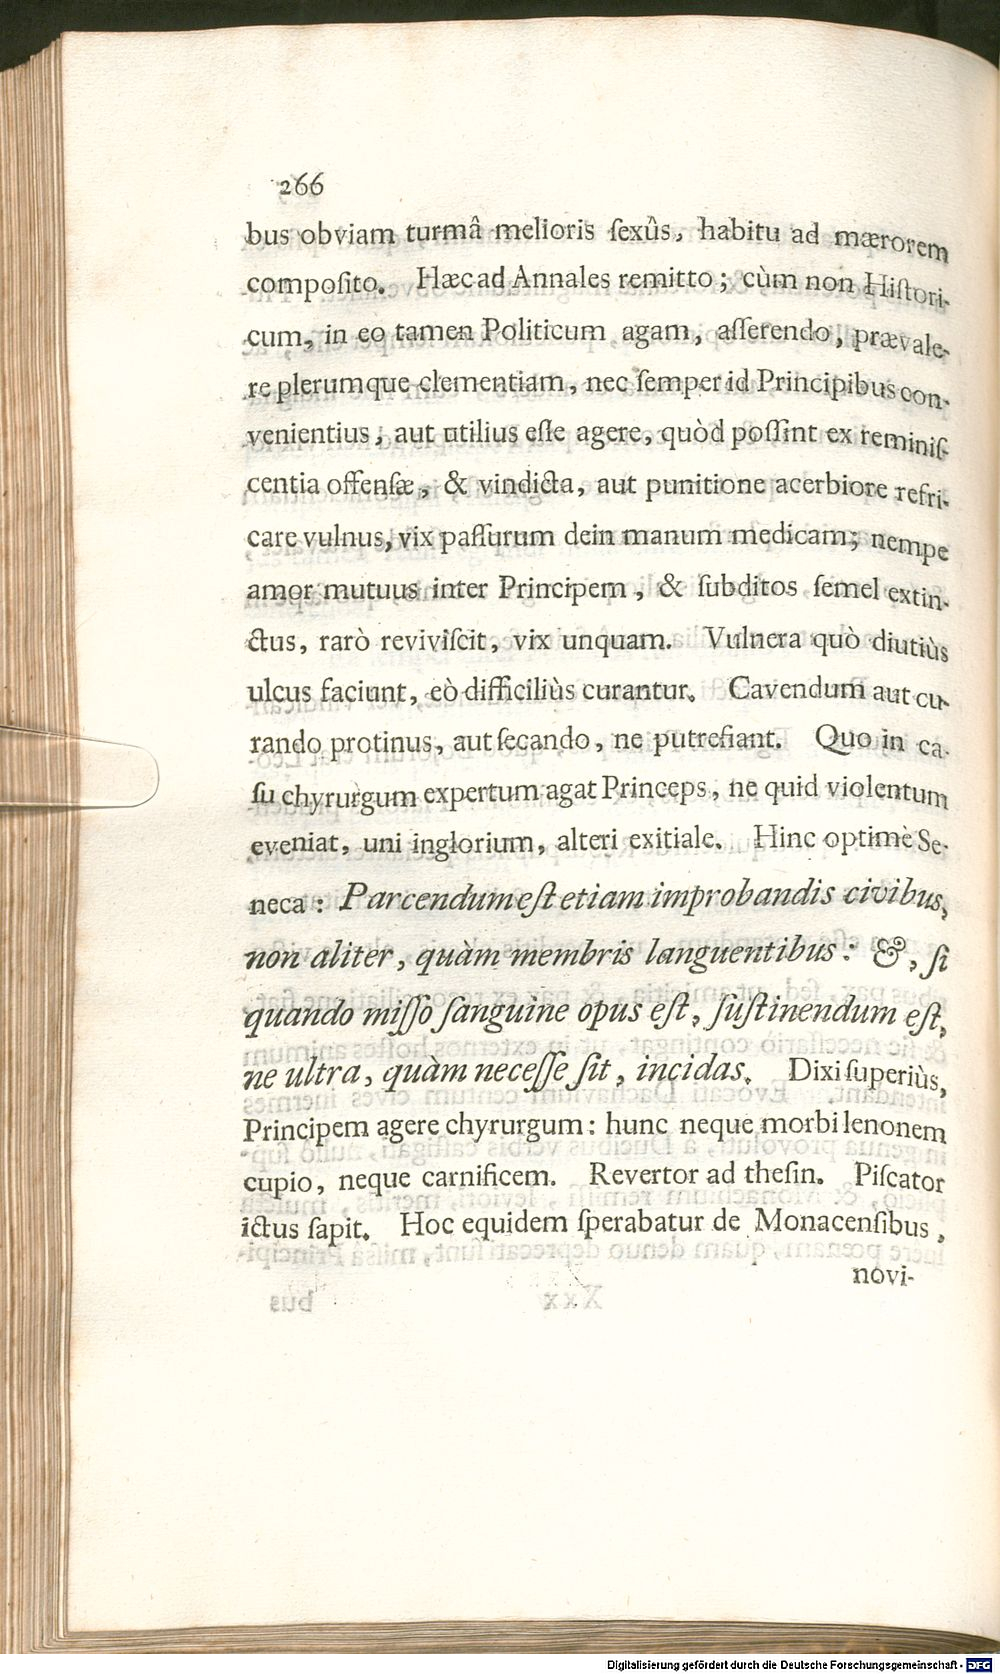 266
bus obviam turmâ melioris ſexûs, habitu ad mærorem
compoſito. Hæc ad Annales remitto; cùm non Hiſtori-
cum, in eo tamen Politicum agam, aſſerendo, prævale-
re plerumque clementiam, nec ſemper id Principibus con-
venientius, aut utilius eſſe agere, quòd poſſint ex reminiſ-
centia offenſæ, & vindicta, aut punitione acerbiore refri-
care vulnus, vix paſſurum dein manum medicam; nempe
amor mutuus inter Principem, & ſubditos ſemel extin-
ctus, rarò reviviſcit, vix unquam. Vulnera quò diutiùs
ulcus faciunt, eò difficiliùs curantur. Cavendum aut cu-
rando protinus, aut ſecando, ne putrefiant. Quo in ca-
ſu chyrurgum expertum agat Princeps, ne quid violentum
eveniat, uni inglorium, alteri exitiale. Hinc optimè Se-
neca: Parcendum eſt etiam improbandis civibus,
non aliter, quàm membris languentibus: &, ſi
quando miſſo ſanguine opus eſt, ſuſtinendum eſt,
ne ultra, quàm neceſſe ſit, incidas. Dixi ſuperiùs,
Principem agere chyrurgum: hunc neque morbi lenonem
cupio, neque carnificem. Revertor ad theſin. Piſcator
ictus ſapit. Hoc equidem ſperabatur de Monacenſibus,
novi-
Digitalisierung gefördert durch die Deutsche Forschungsgemeinschaft - DFG